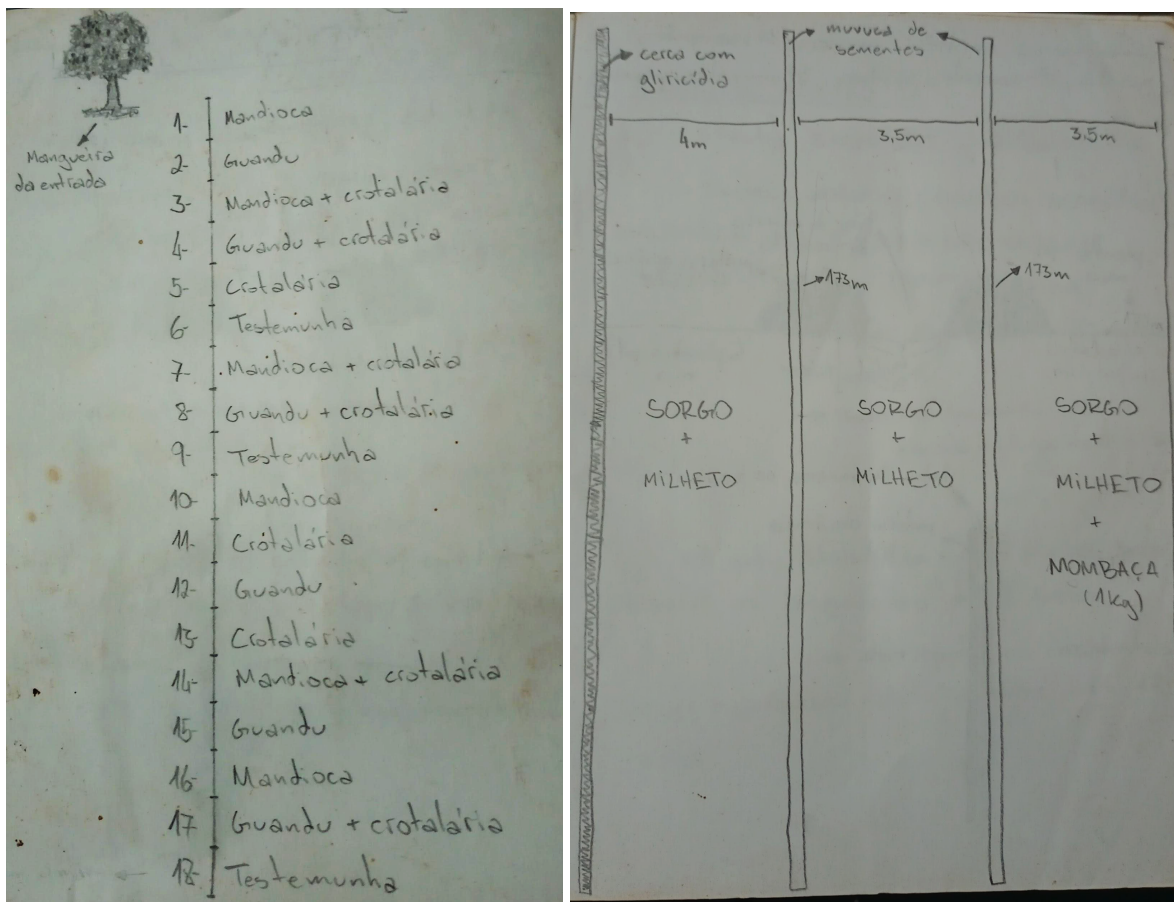 Mangueira
da entrada
1- Mandioca
2- Guandu
3- Mandioca + crotalária
4- Guandu + crotalária
5- Crotalária
6- Testemunha
7- Mandioca + crotalária
8- Guandu + crotalária
9- Testemunha
10- Mandioca
11- Crotalária
12- Guandu
13- Crotalária
14- Mandioca + crotalária
15- Guandu
16- Mandioca
17- Guandu + crotalária
18- Testemunha
cerca com
gliricídia
muvuca de
sementes
4m
3,5m
3,5m
173m
173m
SORGO
+
MILHETO
SORGO
+
MILHETO
SORGO
+
MILHETO
+
MOMBAÇA
(1kg)